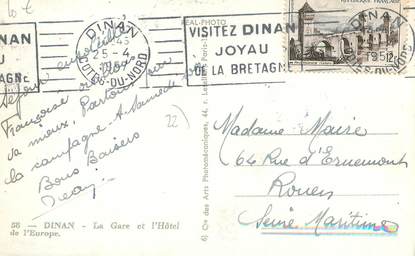 10 €
REAL-PHOTO
DINAN
15-4
1957
CÔTES-DU-NORD
DINAN
AU
TAGNE
VISITEZ DINAN
JOYAU
DE LA BRETAGNE
RÉPUBLIQUE FRANÇAISE
12F
DINAN
Séjour
Françoise
va mieux, Partons
la campagne. A Samedi
Bons Baisers
Jean
22
Madame Maire
64 Rue d'Ernemont
Rouen
Seine Maritime
6) Cie des Arts Photomécaniques, 44, r. Letellier - Paris
58 — DINAN - La Gare et l'Hôtel
de l'Europe.